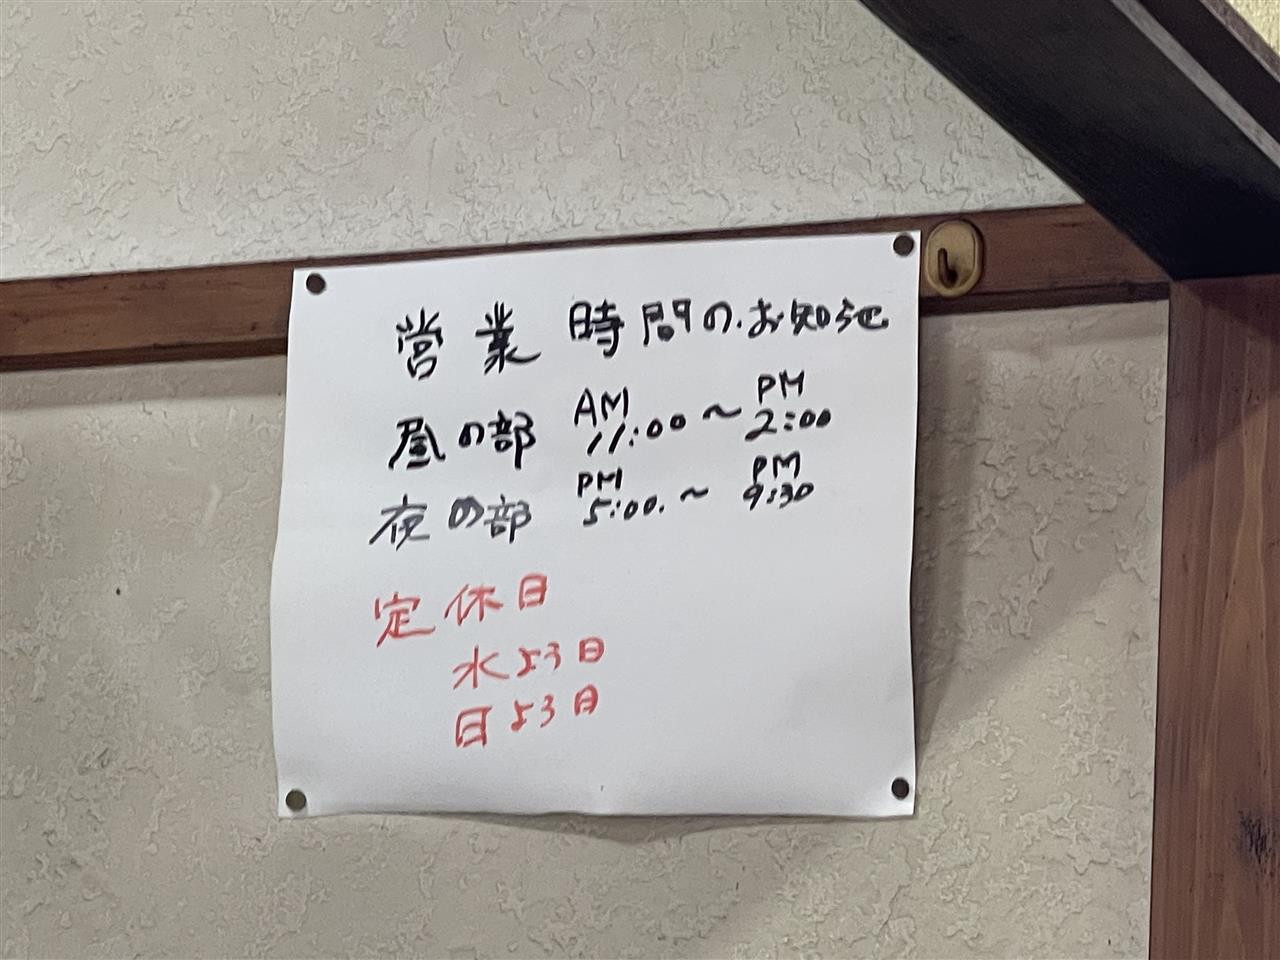 営業時間のお知らせ
昼の部 AM 11:00 ～ PM 2:00
夜の部 PM 5:00. ～ PM 9:30
定休日
水よう日
日よう日